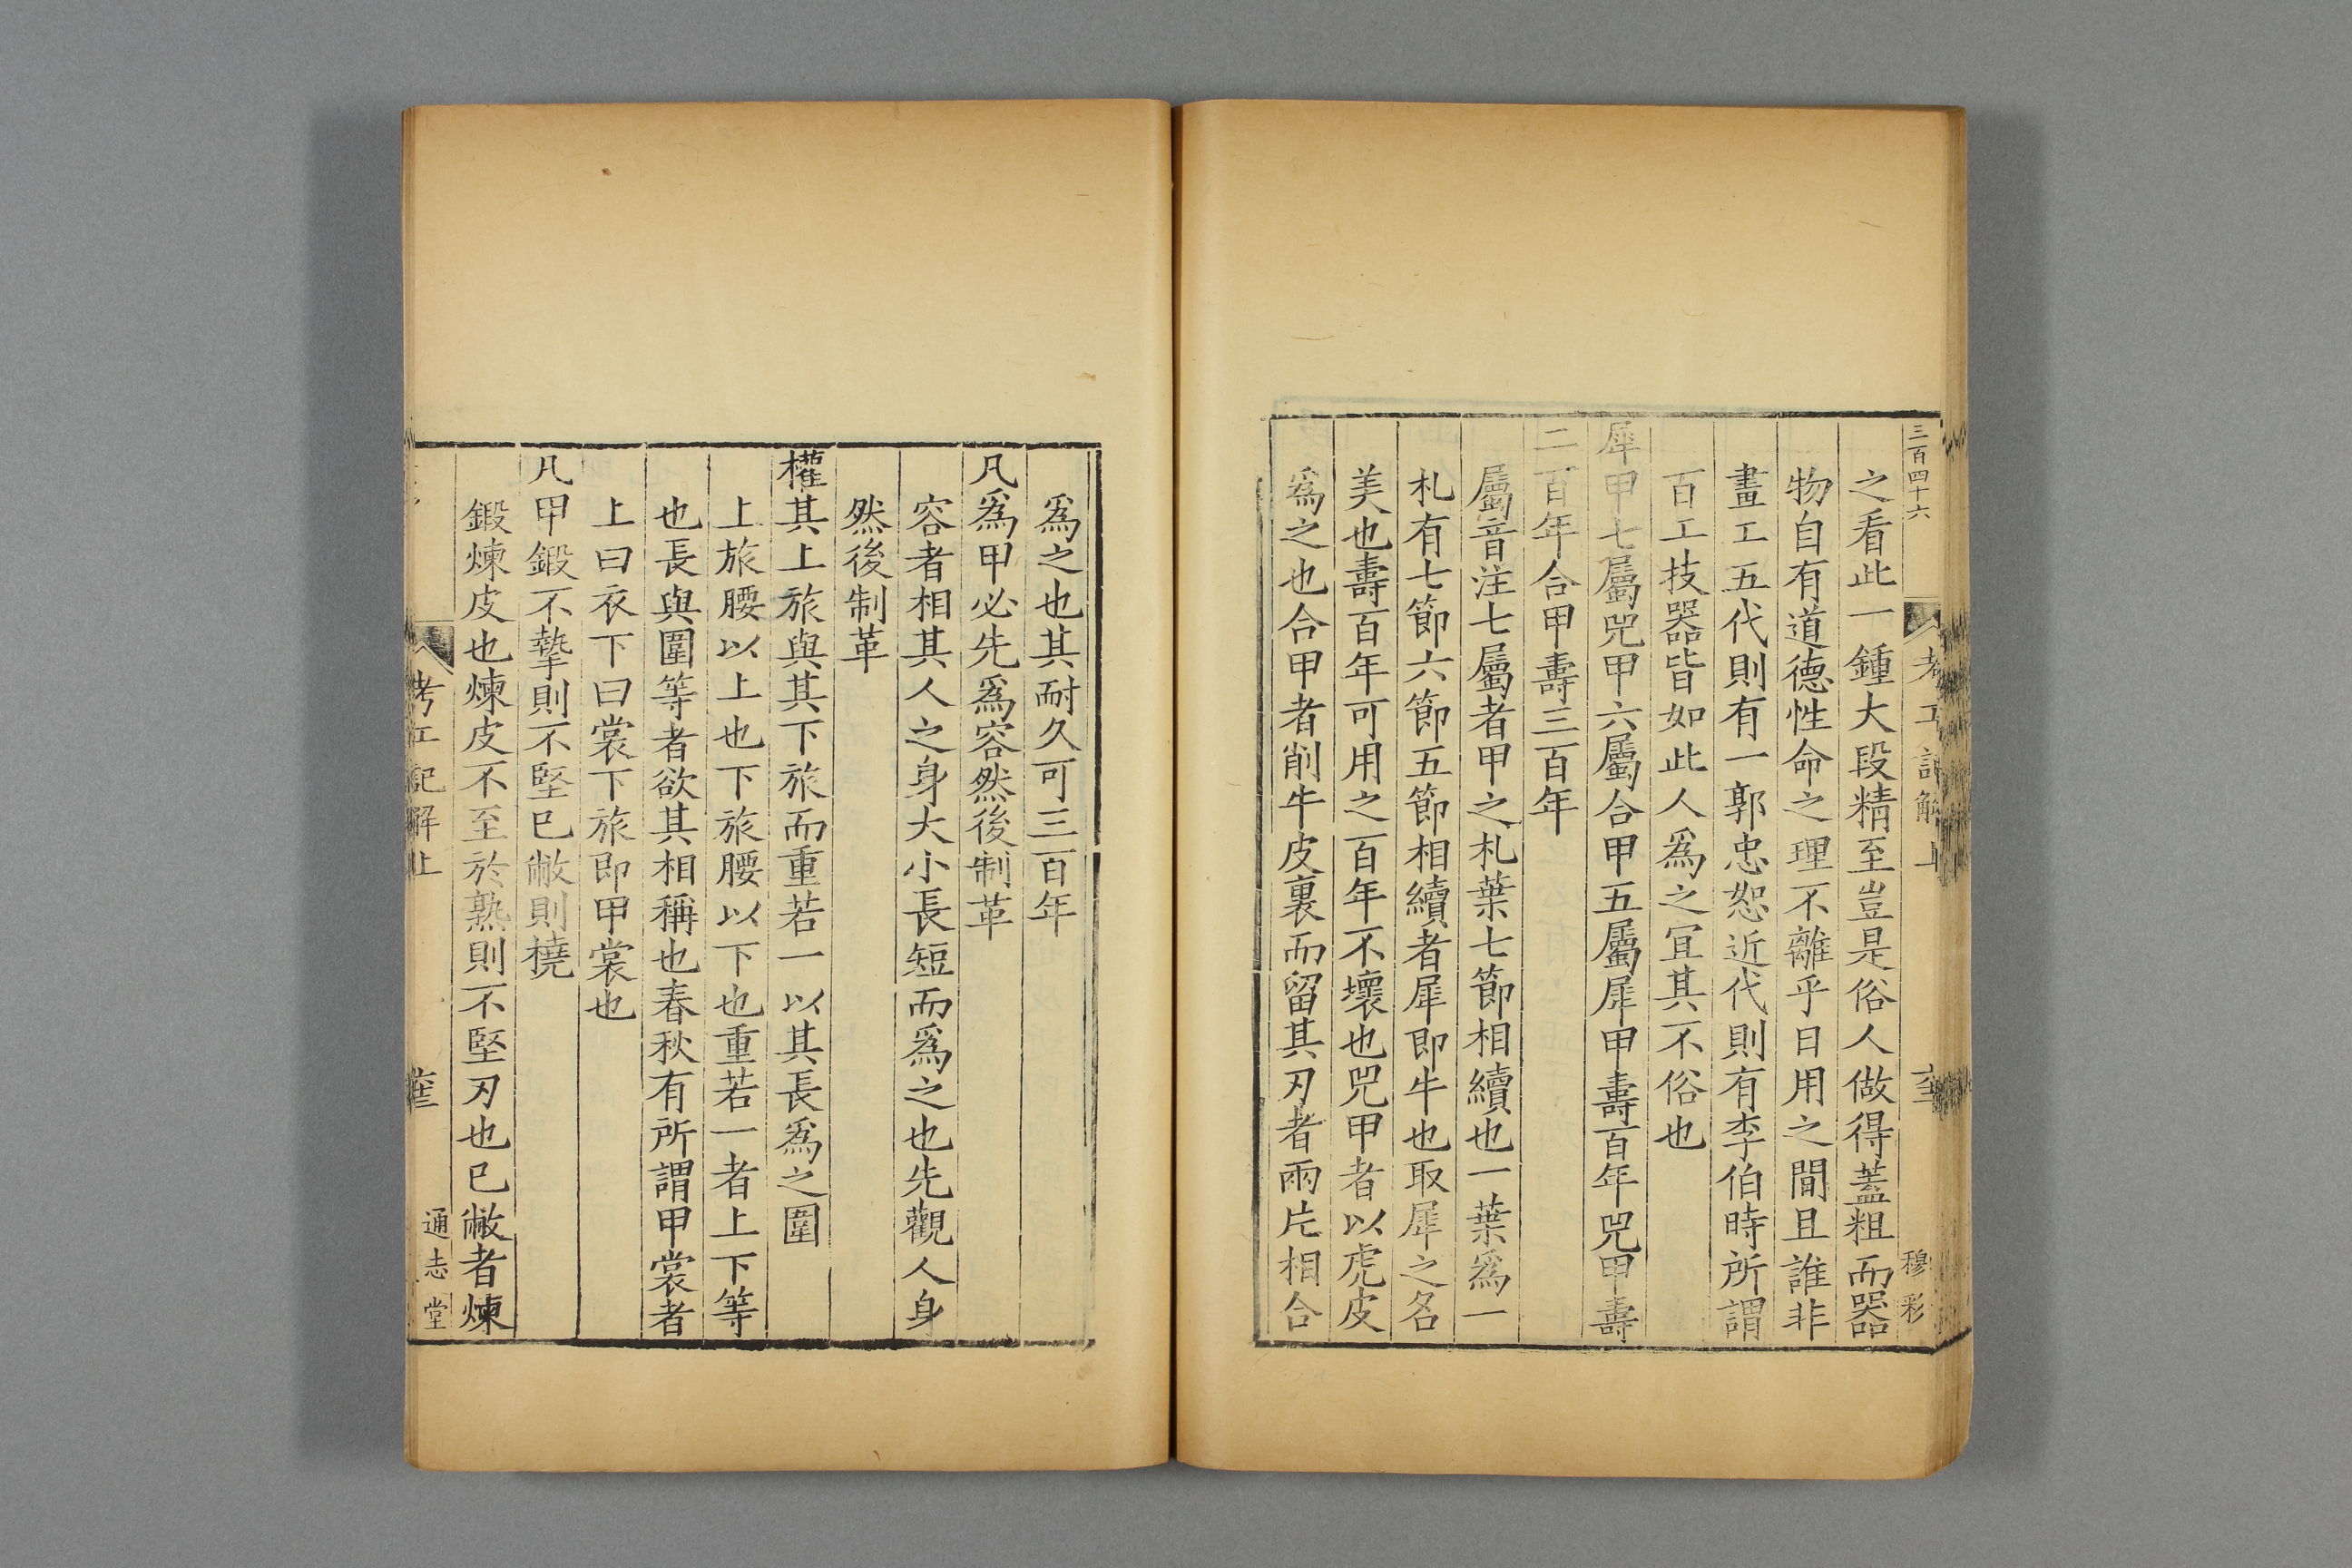 三百四十六
考工記解上
穆彩
之看此一鍾大段精至豈是俗人做得蓋粗而器
物自有道德性命之理不離乎日用之間且誰非
畫工五代則有一郭忠恕近代則有李伯時所謂
百工技器皆如此人爲之冝其不俗也
犀甲七屬兕甲六屬合甲五屬犀甲壽百年兕甲壽
二百年合甲壽三百年
屬音注七屬者甲之札葉七節相續也一葉爲一
札有七節六節五節相續者犀即牛也取犀之名
美也壽百年可用之百年不壞也兕甲者以虎皮
爲之也合甲者削牛皮裏而留其刃者兩片相合
爲之也其耐久可三百年
凡爲甲必先爲容然後制革
容者相其人之身大小長短而爲之也先觀人身
然後制革
權其上旅與其下旅而重若一以其長爲之圍
上旅腰以上也下旅腰以下也重若一者上下等
也長與圍等者欲其相稱也春秋有所謂甲裳者
上曰衣下曰裳下旅即甲裳也
凡甲鍛不摯則不堅已敝則橈
鍛煉皮也煉皮不至於熟則不堅刃也已敝者煉
考工記解上
通志堂